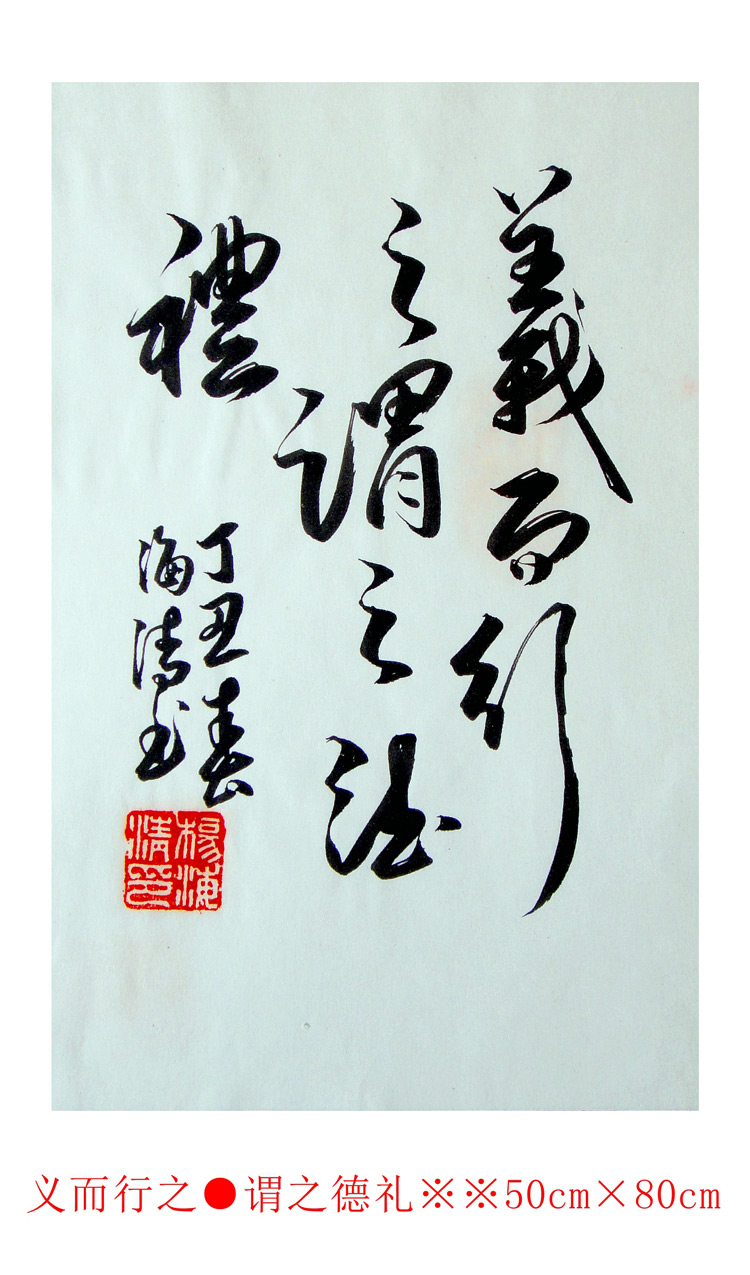 義而行
之謂之德
禮
丁丑春
海清书
楊海
清印
义而行之●谓之德礼※※50cm×80cm